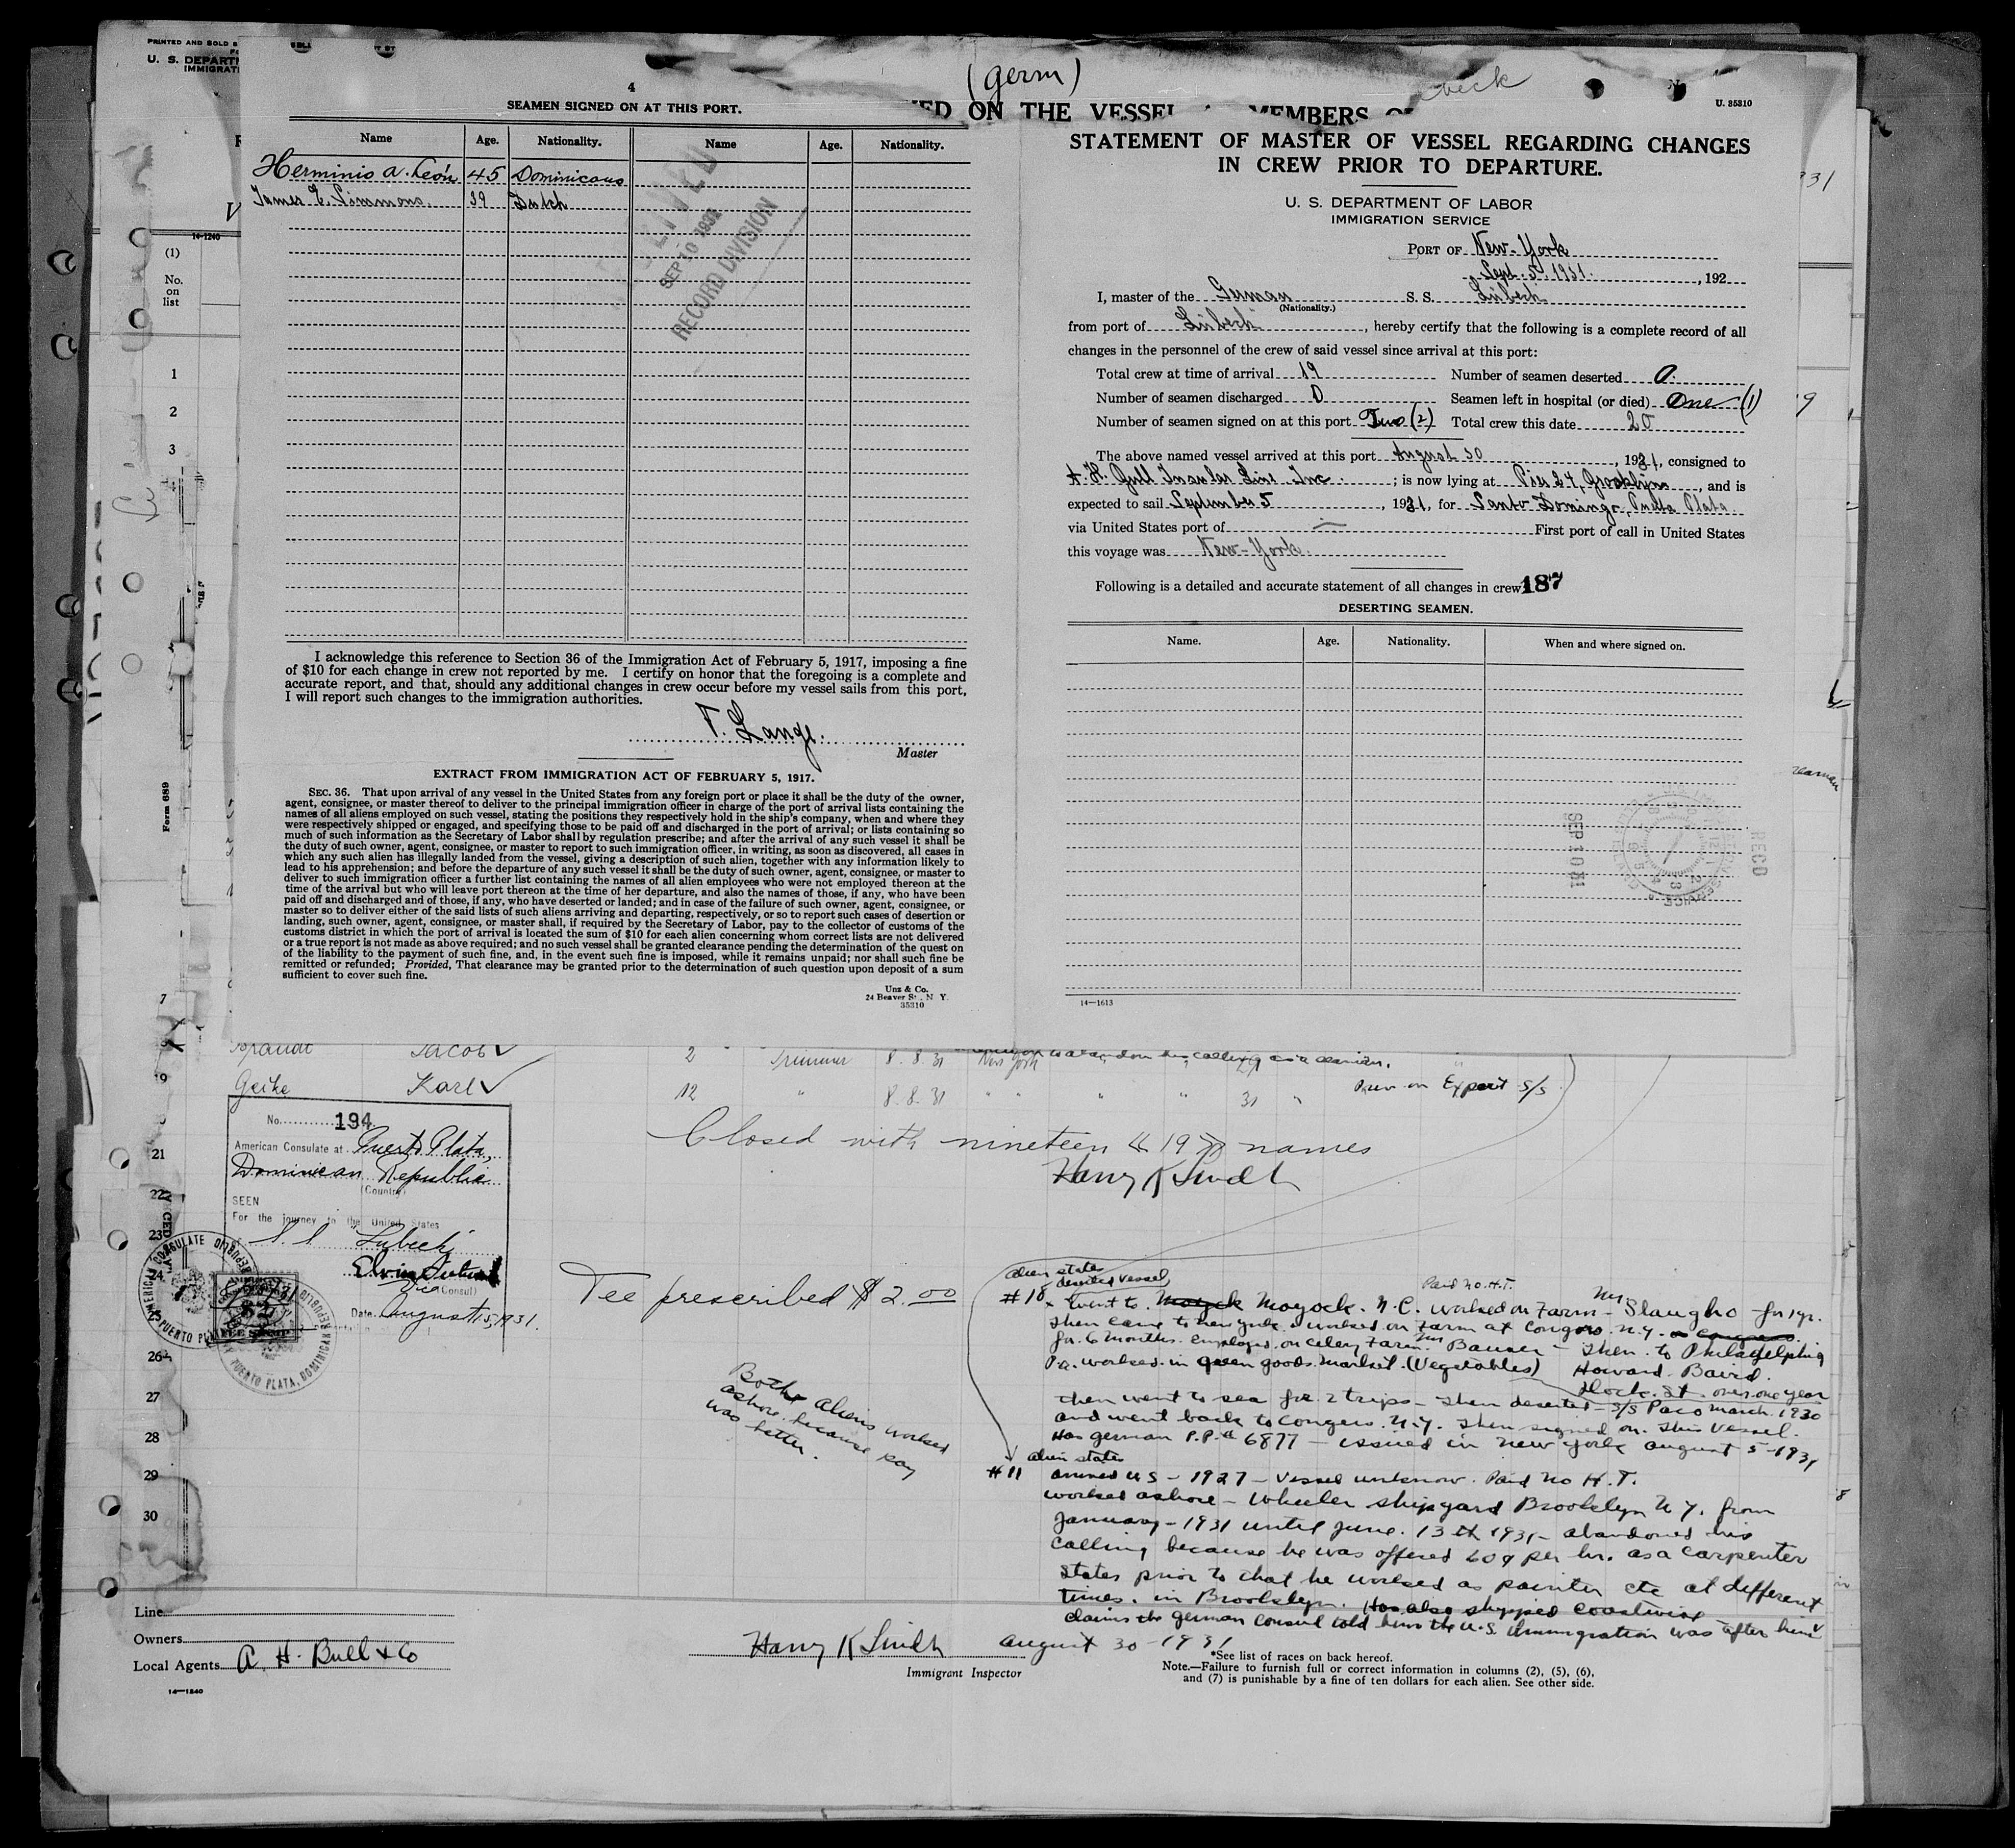 PRINTED AND SOLD B
U. S. DEPARTM
IMMIGRATI
(germ)
ED ON THE VESSEL MEMBERS O
beck
4
SEAMEN SIGNED ON AT THIS PORT.
Name Age. Nationality. Name Age. Nationality.
Herminio A. León 45 Dominicano
James E. Simmons 39 Dutch
SEP 10 1931
RECORD DIVISION
I acknowledge this reference to Section 36 of the Immigration Act of February 5, 1917, imposing a fine
of $10 for each change in crew not reported by me. I certify on honor that the foregoing is a complete and
accurate report, and that, should any additional changes in crew occur before my vessel sails from this port,
I will report such changes to the immigration authorities.
T. Lange.
Master
EXTRACT FROM IMMIGRATION ACT OF FEBRUARY 5, 1917.
SEC. 36. That upon arrival of any vessel in the United States from any foreign port or place it shall be the duty of the owner,
agent, consignee, or master thereof to deliver to the principal immigration officer in charge of the port of arrival lists containing the
names of all aliens employed on such vessel, stating the positions they respectively hold in the ship's company, when and where they
were respectively shipped or engaged, and specifying those to be paid off and discharged in the port of arrival; or lists containing so
much of such information as the Secretary of Labor shall by regulation prescribe; and after the arrival of any such vessel it shall be
the duty of such owner, agent, consignee, or master to report to such immigration officer, in writing, as soon as discovered, all cases in
which any such alien has illegally landed from the vessel, giving a description of such alien, together with any information likely to
lead to his apprehension; and before the departure of any such vessel it shall be the duty of such owner, agent, consignee, or master to
deliver to such immigration officer a further list containing the names of all alien employees who were not employed thereon at the
time of the arrival but who will leave port thereon at the time of her departure, and also the names of those, if any, who have been
paid off and discharged and of those, if any, who have deserted or landed; and in case of the failure of such owner, agent, consignee, or
master so to deliver either of the said lists of such aliens arriving and departing, respectively, or so to report such cases of desertion or
landing, such owner, agent, consignee, or master shall, if required by the Secretary of Labor, pay to the collector of customs of the
customs district in which the port of arrival is located the sum of $10 for each alien concerning whom correct lists are not delivered
or a true report is not made as above required; and no such vessel shall be granted clearance pending the determination of the quest on
of the liability to the payment of such fine, and, in the event such fine is imposed, while it remains unpaid; nor shall such fine be
remitted or refunded; Provided, That clearance may be granted prior to the determination of such question upon deposit of a sum
sufficient to cover such fine.
Unz & Co.
24 Beaver St., N. Y.
35310
U. 35310
STATEMENT OF MASTER OF VESSEL REGARDING CHANGES
IN CREW PRIOR TO DEPARTURE.
U. S. DEPARTMENT OF LABOR
IMMIGRATION SERVICE
PORT OF New-York
Sept. 5. 1931. , 192
I, master of the German S. S. Lübeck
(Nationality.)
from port of Lübeck , hereby certify that the following is a complete record of all
changes in the personnel of the crew of said vessel since arrival at this port:
Total crew at time of arrival 19 Number of seamen deserted 0.
Number of seamen discharged 0 Seamen left in hospital (or died) One (1)
Number of seamen signed on at this port Two (2) Total crew this date 20
The above named vessel arrived at this port August 30 , 1931, consigned to
A. H. Bull Insular Line Inc. ; is now lying at Pier 27, Brooklyn , and is
expected to sail September 5 , 1931, for Santo Domingo, Puerta Plata
via United States port of — First port of call in United States
this voyage was New-York.
Following is a detailed and accurate statement of all changes in crew 187
DESERTING SEAMEN.
Name. Age. Nationality. When and where signed on.
SEP 10 31
RECD
14—1613
14-1240
(1)
No.
on
list
1
2
3
Form 689
7
Brandt Jacob ✓ 2 " Trimmer 8.8.31 New York
9 Geike Karl ✓ 12 " 8.8.31 " " " " 31 " Prev on Export S/S
Closed with nineteen « 19 » names
Harry K Lindh
No. 194
American Consulate at Puerto Plata,
Dominican Republic
(Country)
SEEN
For the journey to the United States
S.S. Lubeck
Vice (Consul)
Date August 15, 1931.
AMERICAN CONSULATE
PUERTO PLATA, DOMINICAN REPUBLIC
21
22
23
24
26
27
28
29
30
Fee prescribed $2.00
Both aliens worked
ashore because pay
was better.
alien states
deserted vessel Paid no H.T.
#18 Went to Moyock Moyock. N.C. worked on Farm - Slaugho for 1 yr.
then came to new york & worked on Farm at Congers. N.Y. Congers.
for 6 months. employed on celery Farm. Bauser - then to Philadelphia
Pa. worked in green goods market. (Vegetables) Howard Baird.
Dock. St. over one year
then went to sea for 2 trips - then deserted - S/S Paco March. 1930
and went back to Congers. N.Y. then signed on this vessel.
Has german P.P.# 6877 - issued in new york august 5-1931
alien states
#11 arrived U S - 1927 - vessel unknow. Paid no H.T.
worked ashore - Wheeler shipyard Brooklyn N Y. from
January - 1931 until June. 13th 1931 - abandoned his
calling because he was offered 60¢ per hr. as a carpenter
states prior to that he worked as painter etc at different
times. in Brooklyn. Has also shipped coastwise
claims the german consul told him the U.S. Immigration was after him
august 30 - 1931
Line
Owners
Local Agents A. H. Bull & Co
14—1240
Harry K Lindh
Immigrant Inspector
*See list of races on back hereof.
Note.—Failure to furnish full or correct information in columns (2), (5), (6),
and (7) is punishable by a fine of ten dollars for each alien. See other side.